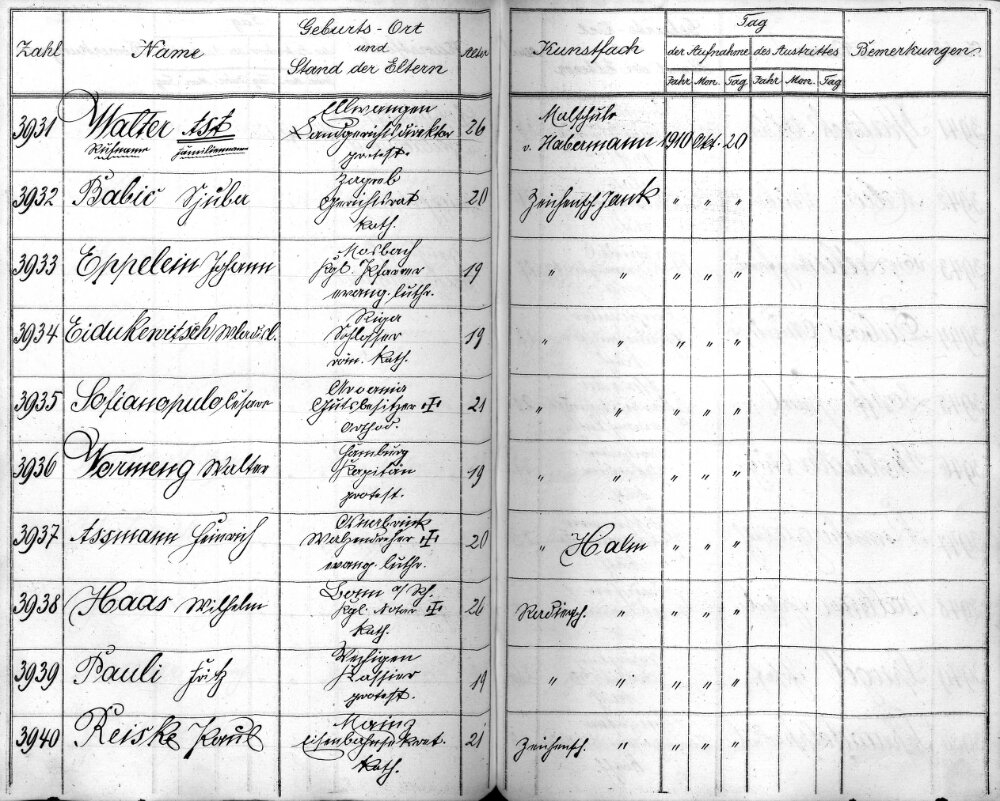 Zahl Name Geburts-Ort und Stand der Eltern Alter Kunstfach Tag der Aufnahme des Austrittes Bemerkungen
Jahr Mon. Tag Jahr Mon. Tag
3931 Walter Ast Ellwangen 26 Malschule
Rufname Familienname Landgerichtsdirektor v. Habermann 1910 Okt. 20
protest.
3932 Babic Ljuba Zagreb 20 Zeichensch. Jank " " "
Gerichtsrat
kath.
3933 Eppelein Johann Mosbach 19 " " " " "
Kgl. Pfarrer
evang. luthr.
3934 Eidukewitsch Wladisl. Riga 19 " " " " "
Schlosser
röm. kath.
3935 Sofianopulo Cesare 21 " " " " "
Gutsbesitzer †
orthod.
3936 Wormeng Walter Hamburg 19 " " " " "
Kapitän
protest.
3937 Assmann Heinrich Osnabrück 20 " Halm " " "
Walzendreher †
evang. luthr.
3938 Haas Wilhelm Bonn a/Rh. 26 Radiersch. " " " "
Kgl. Notar †
kath.
3939 Pauli Fritz 19 " " " " "
Kassier
protest.
3940 Reiske Paul Mainz 21 Zeichensch. " " " "
kath.